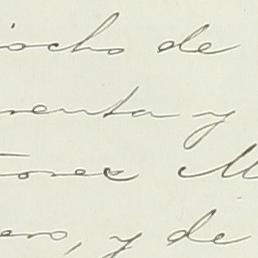 iocho de
renta y
tores M
ero, y de